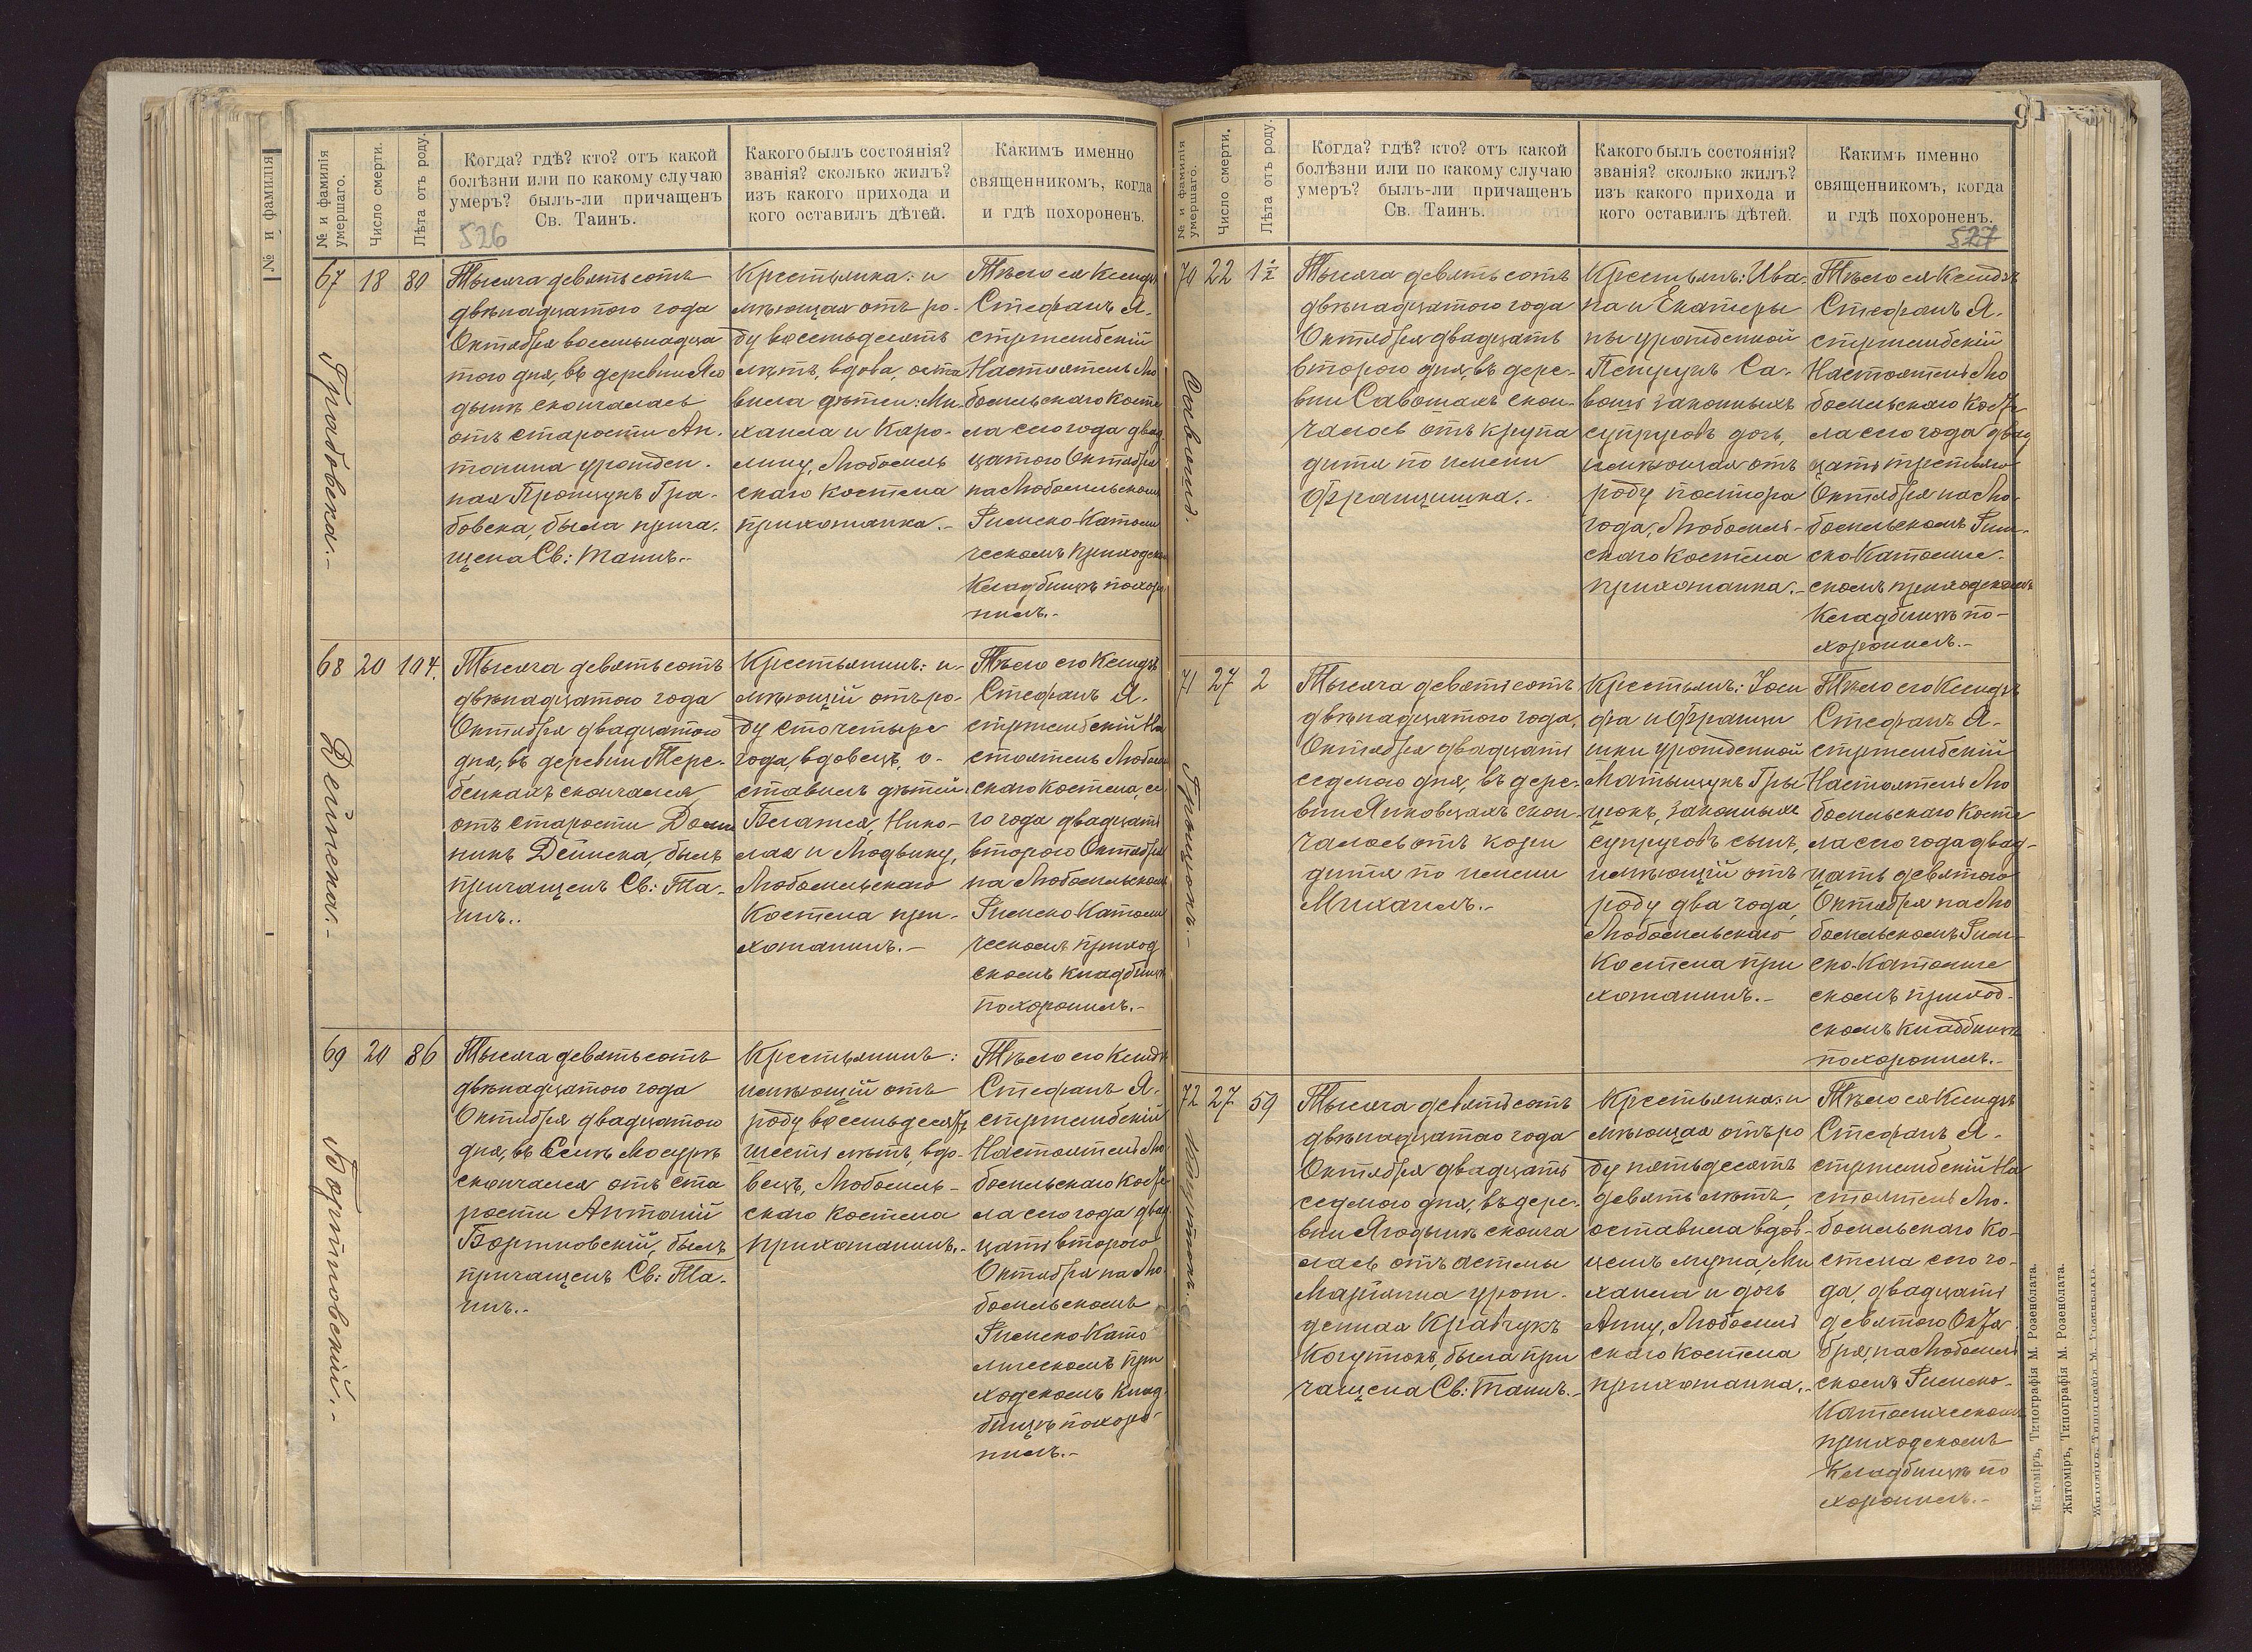 № и фамилія
№ и фамилія умершаго.
Число смерти.
Лѣта отъ роду.
Когда? гдѣ? кто? отъ какой
болѣзни или по какому случаю
умеръ? былъ-ли причащенъ
Св. Таинъ.
526
Какого былъ состоянія?
званія? сколько жилъ?
изъ какого прихода и
кого оставилъ дѣтей.
Какимъ именно
священникомъ, когда
и гдѣ похороненъ.
67
Грабовска.-
18
80
Тысяча девятьсотъ
двѣнадцатого года
Октября восемьнадца
того дня, въ деревни Яго
дынѣ скончалась
отъ старости Ан-
тонина урожден-
ная Процукъ Гра-
бовска, была прича-
щена Св: Таинъ.-
Крестьянка: и
мѣющая отъ ро-
ду восемьдесятъ
лѣтъ, вдова, оста
вила дѣтей: Ми-
хаила и Каро-
лину, Любомль
скаго костела
прихожанка.-
Тѣло ея Ксендзъ
Стефанъ Я-
стржембскій
Настоятель Лю
бомльскаго Косте
ла сего года двад
цатого Октября
на Любомльскомъ
Римско-Католи
ческомъ приходском
Кладбищѣ похоро
нилъ.-
68
Дейнека.-
20
104.
Тысяча девятьсотъ
двѣнадцатого года
Октября двадцатого
дня, въ деревни Тере-
бейкахъ скончался
отъ старости Доми
никъ Дейнека, былъ
причащенъ Св: Та-
инъ..
Крестьянинъ: и-
мѣющій отъ ро-
ду сто четыре
года, вдовецъ, о-
ставилъ дѣтей:
Блажея, Нико-
лая и Людвику,
Любомльскаго
Костела при-
хожанинъ.-
Тѣло его Ксендзъ
Стефанъ Я-
стржембскій На
стоятель Любомль
скаго Костела, се
го года двадцать
второго Октября
на Любомльскомъ
Римско-Католи
ческомъ приход
скомъ кладбищѣ
похоронилъ.-
69
Бортновскій.-
20
86
Тысяча девятьсотъ
двѣнадцатого года
Октября двадцатого
дня, въ Селѣ Мосурѣ
скончался отъ ста
рости Антоній
Бортновскій, былъ
причащенъ Св: Та-
инъ.-
Крестьянинъ:
имѣющій отъ
роду восемьдесятъ
шесть лѣтъ, вдо-
вецъ, Любомль-
скаго костела
прихожанинъ.-
Тѣло его Ксендзъ
Стефанъ Я-
стржембскій
Настоятель Лю
бомльскаго Косте
ла сего года двад
цать второго
Октября на Лю-
бомльскомъ
Римско Като
лическомъ при
ходскомъ клад
бищѣ похоро-
нилъ.-
91
№ и фамилія умершаго.
Число смерти.
Лѣта отъ роду.
Когда? гдѣ? кто? отъ какой
болѣзни или по какому случаю
умеръ? былъ-ли причащенъ
Св. Таинъ.
Какого былъ состоянія?
званія? сколько жилъ?
изъ какого прихода и
кого оставилъ дѣтей.
Какимъ именно
священникомъ, когда
и гдѣ похороненъ.
527
70
22
1½
Тысяча девятьсотъ
двѣнадцатого года
Октября двадцать
второго дня, въ дере-
вни Савошахъ скон-
чалось отъ крупа
дитя по имени
Францишка.-
Крестьянъ: Ива-
на и Екатеры
ны урожденной
Са-
законныхъ
супруговъ дочь,
имѣющая отъ
роду полтора
года, Любомль-
скаго костела
прихожанка.-
Тѣло ея Ксендзъ
Стефанъ Я-
стржембскій
Настоятель Лю
бомльскаго Косте
ла сего года двад
цать третьяго
Октября на Лю-
бомльскомъ Рим-
ско-Католиче-
скомъ приходскомъ
Кладбищѣ по-
хоронилъ.-
71
Грицюкъ.-
27
2
Тысяча девятьсотъ
двѣнадцатого года,
Октября двадцать
седмого дня, въ дере-
вни Янковцахъ скон-
чалось отъ кори
дитя по имени
Михаилъ.-
Крестьянъ: Іоси
фа и Францы
шки урожденной
Матыщукъ Гры
цюкъ, законныхъ
супруговъ сынъ,
имѣющій отъ
роду два года,
Любомльскаго
Костела при
хожанинъ.-
Тѣло его Ксендзъ
Стефанъ Я-
стржембскій
Настоятель Лю
бомльскаго Косте
ла сего года двад-
цать девятого
Октября на Лю
бомльскомъ Рим-
ско-Католиче
скомъ приход-
скомъ кладбищѣ
похоронилъ.-
72
Когутюкъ.
27
59
Тысяча девятьсотъ
двѣнадцатаго года
Октября двадцать
седмого дня, въ дере-
вни Ягодынѣ сконча
лась отъ астмы
Маріанна урож-
денная Кравчукъ
Когутюкъ, была при
чащена Св: Таинъ.-
Крестьянка: и
мѣющая отъ ро
ду пятьдесятъ
девять лѣтъ,
оставила вдов-
цемъ мужа, Ми
хаила и дочь
Анну, Любомль
скаго костела
прихожанка.-
Тѣло ея Ксендзъ
Стефанъ Я-
стржембскій На
стоятель Лю-
бомльскаго Ко-
стела сего го-
да, двадцать
девятого Октя
бря, на Любомль
скомъ Римско-
Католическомъ
приходскомъ
Кладбищѣ по
хоронилъ.-
Житоміръ, Типографія М. Розенблата.
Житоміръ, Типографія М. Розенблата.
Житоміръ, Типографія М. Розенблата.